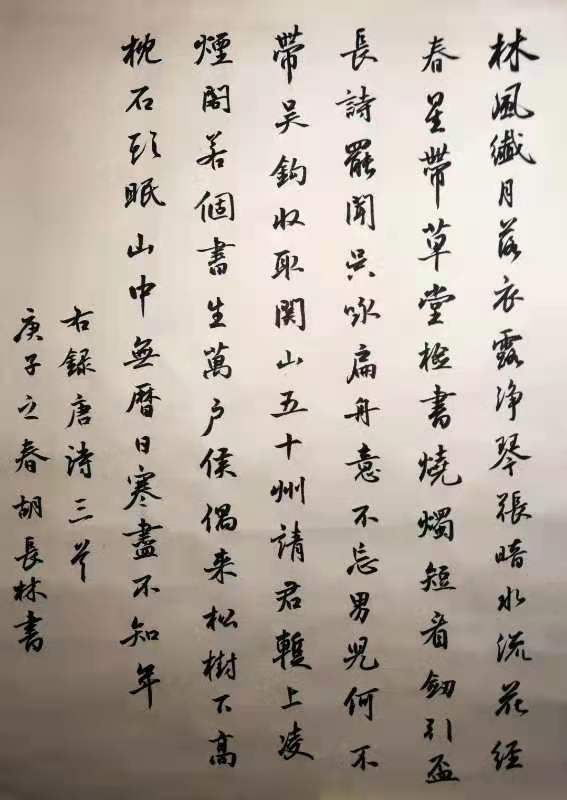 林風纖月落衣露净琴張暗水流花径
春星帶草堂檢書燒燭短看劒引盃
長詩罷聞吳咏扁舟意不忘男兒何不
帶吴鈎收取関山五十州請君暫上凌
煙閣若個書生萬户侯偶来松樹下高
枕石頭眠山中無曆日寒盡不知年
右録唐詩三首
庚子之春胡長林書